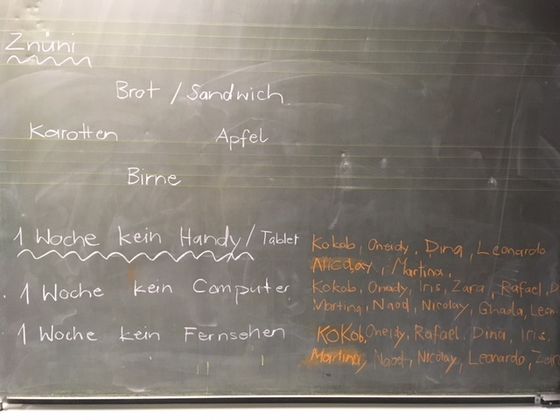 Znüni
Brot / Sandwich
Karotten Apfel
Birne
1 Woche kein Handy / Tablet Kokob, Oneidy, Dina, Leonardo
Nicolay, Martina,
1 Woche kein Computer Kokob, Oneidy, Iris, Zara, Rafael, D
Martina, Naod, Nicolay, Ghada, Leon
1 Woche kein Fernsehen Kokob, Oneidy, Rafael, Dina, Iris,
Martina, Naod, Nicolay, Leonardo, Zar